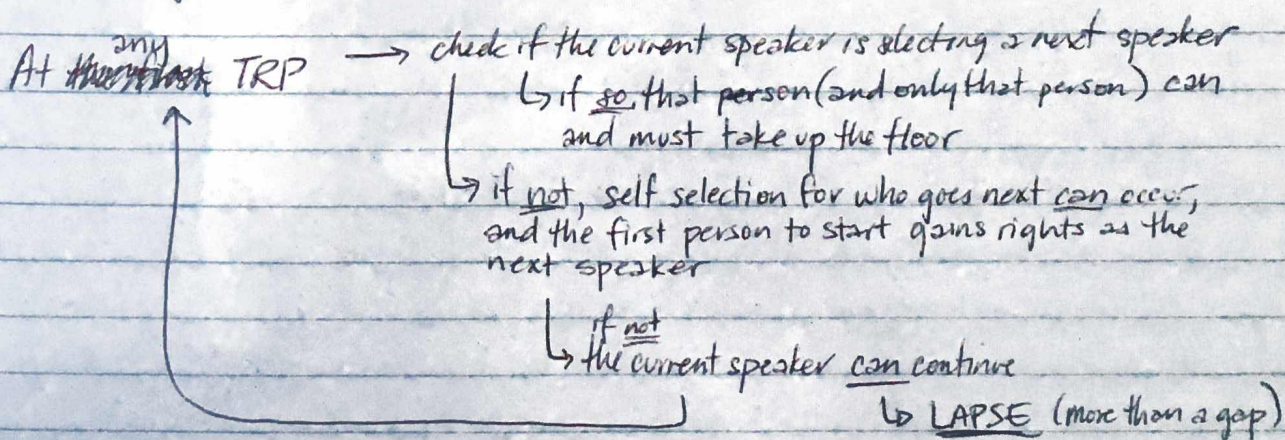 any
At TRP → check if the current speaker is selecting a next speaker
↳ if so, that person (and only that person) can
and must take up the floor
↳ if not, self selection for who goes next can occur,
and the first person to start gains rights as the
next speaker
if not
↳ the current speaker can continue
↳ LAPSE (more than a gap)